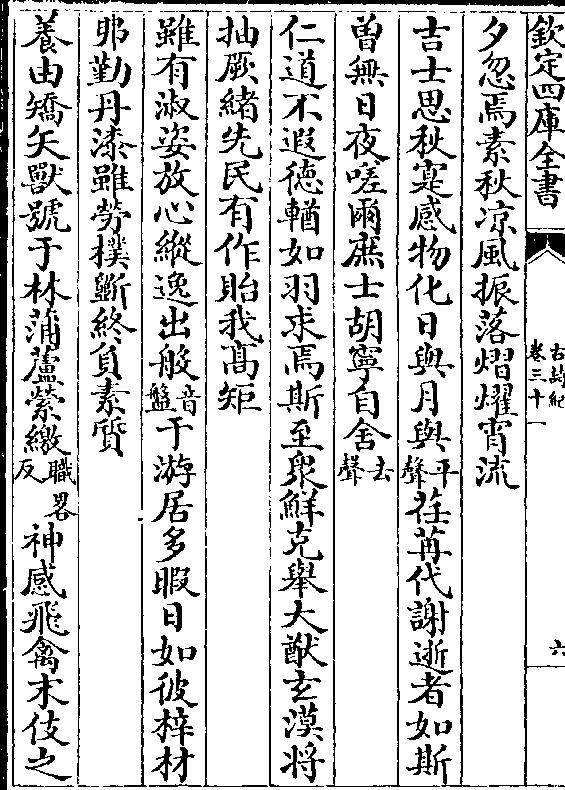 欽定四庫全書
古詩紀
卷三十一
六
夕忽焉素秋凉風振落熠燿宵流
吉士思秋寔感物化日與月與平聲荏苒代謝逝者如斯
曽無日夜嗟爾庶士胡寧自舍去聲
仁道不遐德輶如羽求焉斯至衆鮮克舉大猷玄漠将
抽厥緒先民有作貽我髙矩
雖有淑姿放心縱逸出般音盤于游居多暇日如彼梓材
弗勤丹漆雖勞樸斵終負素質
養由矯矢獸號于林蒲蘆縈繳職畧反神感飛禽末伎之